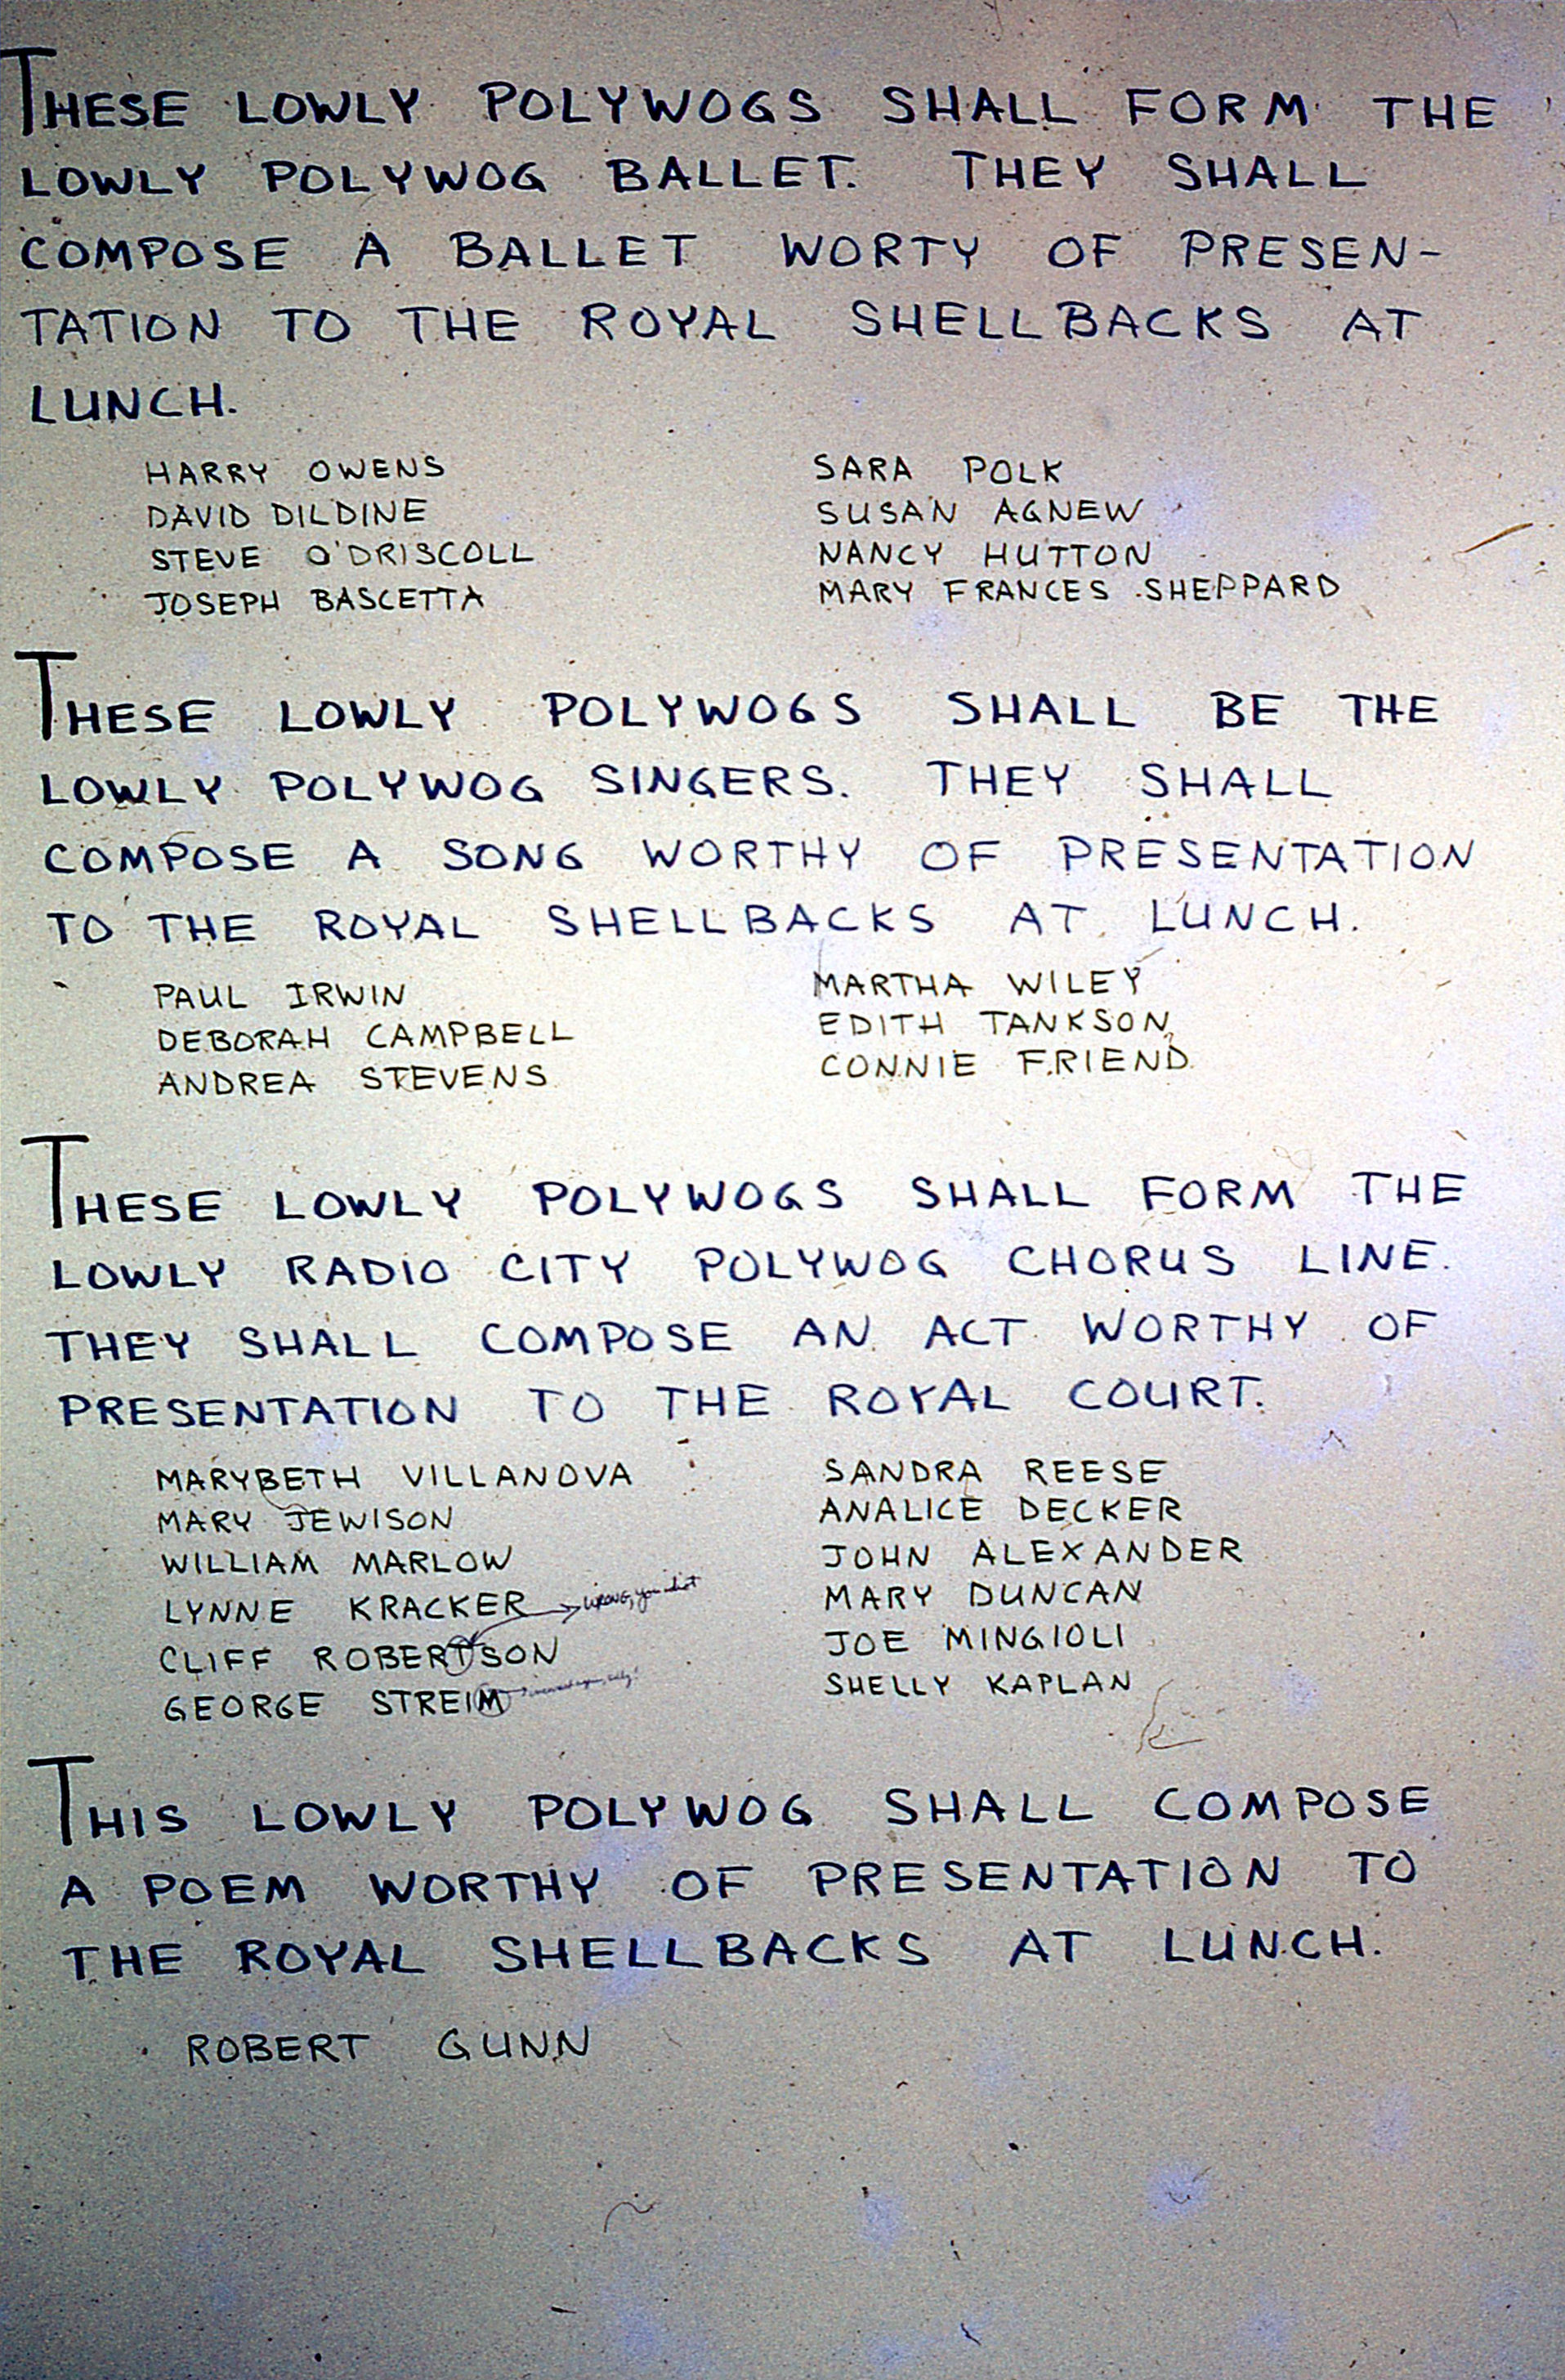 THESE LOWLY POLYWOGS SHALL FORM THE
LOWLY POLYWOG BALLET. THEY SHALL
COMPOSE A BALLET WORTY OF PRESEN-
TATION TO THE ROYAL SHELLBACKS AT
LUNCH.
HARRY OWENS
DAVID DILDINE
STEVE O'DRISCOLL
JOSEPH BASCETTA
SARA POLK
SUSAN AGNEW
NANCY HUTTON
MARY FRANCES SHEPPARD
THESE LOWLY POLYWOGS SHALL BE THE
LOWLY POLYWOG SINGERS. THEY SHALL
COMPOSE A SONG WORTHY OF PRESENTATION
TO THE ROYAL SHELLBACKS AT LUNCH.
PAUL IRWIN
DEBORAH CAMPBELL
ANDREA STEVENS
MARTHA WILEY
EDITH TANKSON
CONNIE FRIEND
THESE LOWLY POLYWOGS SHALL FORM THE
LOWLY RADIO CITY POLYWOG CHORUS LINE.
THEY SHALL COMPOSE AN ACT WORTHY OF
PRESENTATION TO THE ROYAL COURT.
MARYBETH VILLANOVA
MARY JEWISON
WILLIAM MARLOW
LYNNE KRACKER
wrong, you idiot
CLIFF ROBERTSON
GEORGE STREIM
SANDRA REESE
ANALICE DECKER
JOHN ALEXANDER
MARY DUNCAN
JOE MINGIOLI
SHELLY KAPLAN
THIS LOWLY POLYWOG SHALL COMPOSE
A POEM WORTHY OF PRESENTATION TO
THE ROYAL SHELLBACKS AT LUNCH.
ROBERT GUNN